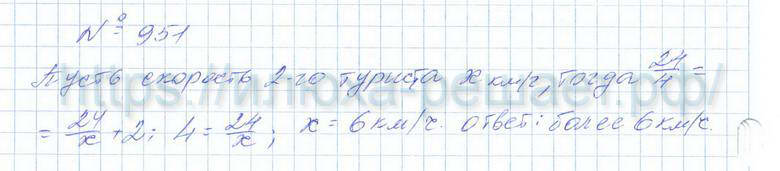 № 951
Пусть скорость 2-го туриста x км/ч, тогда 24/4 =
= 24/x + 2; 4 = 24/x; x = 6 км/ч. ответ: более 6 км/ч.
https://илюха-решает.рф/